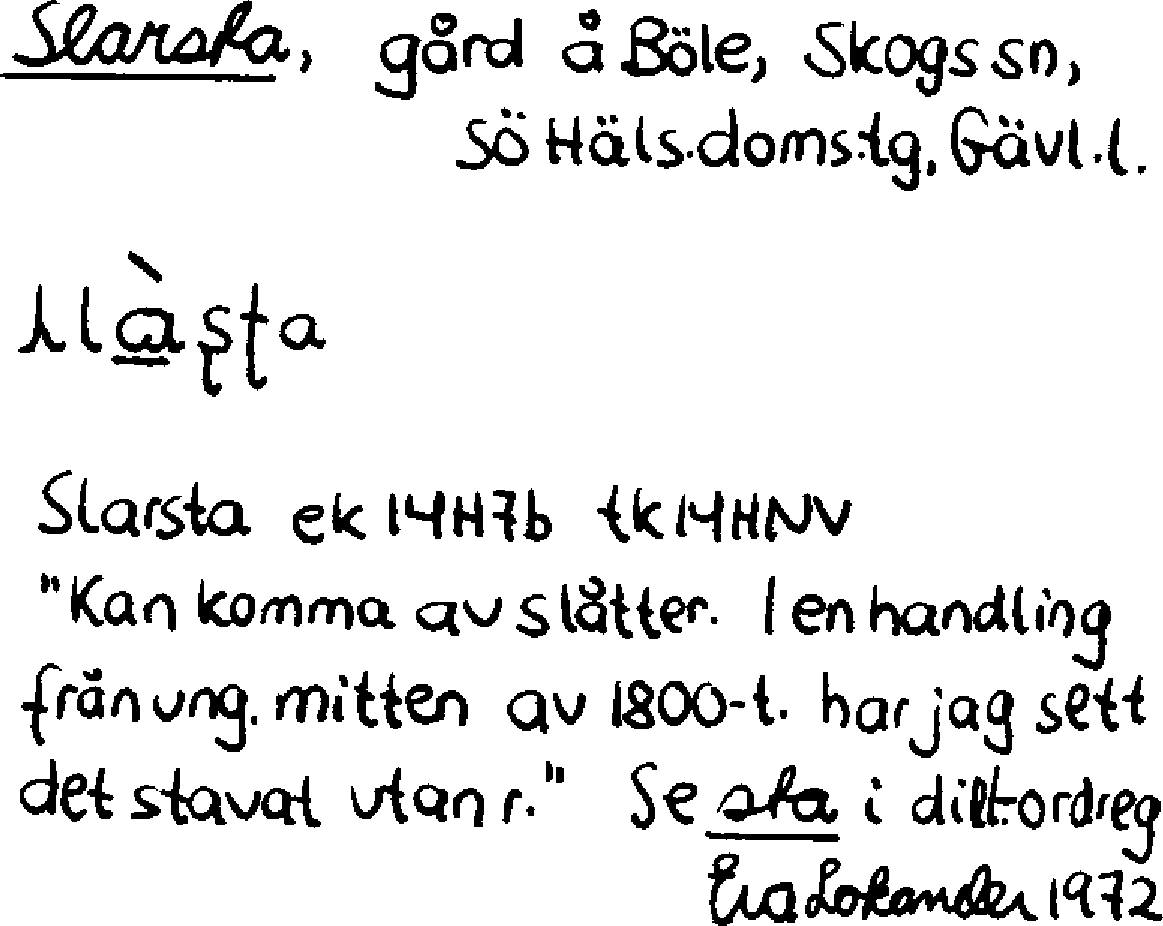 Slarsta, gård å Böle, Skogs sn,
Sö Häls. doms:tg, Gävl. l.
slàʂʈa
Slarsta ek 14H7b tk 14HNV
"Kan komma av slåtter. I en handling
från ung. mitten av 1800-t. har jag sett
det stavat utan r." Se sta i dilt:ordreg
Eva Lokander 1972